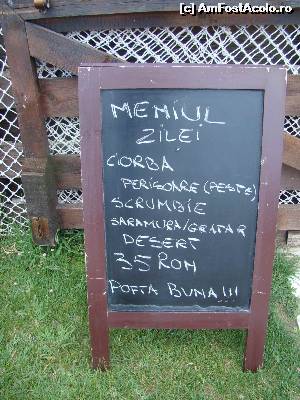 (c) AmFostAcolo.ro
MENIUL
ZILEI
CIORBA
PERIŞOARE (PESTE)
SCRUMBIE
SARAMURA/GRATAR
DESERT
35 RON
POFTA BUNA!!!